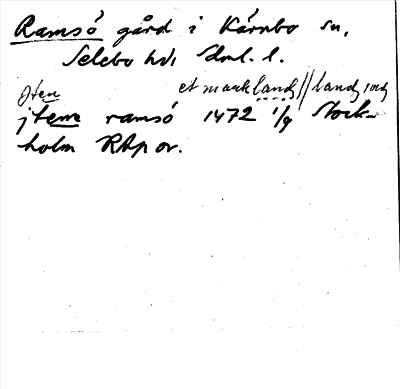 Ramsö gård i Kärnbo sn,
Selebo hd, Sml. l.
Jtem et markland // land jord
jtem ramsö 1472 1/9 Stock-
holm RAp or.